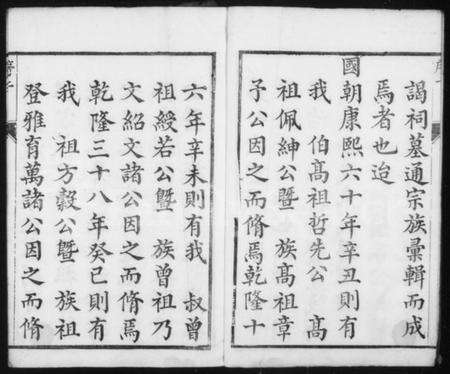 謁祠墓通宗族彙輯而成
焉者也迨
國朝康熙六十年辛丑則有
我　伯髙祖哲先公　髙
祖佩紳公暨　族髙祖章
子公因之而脩焉乾隆十
六年辛未則有我　叔曾
祖綬若公暨　族曾祖乃
文紹文諸公因之而脩焉
乾隆三十八年癸巳則有
我　祖方縠公暨　族祖
登雅育萬諸公因之而脩